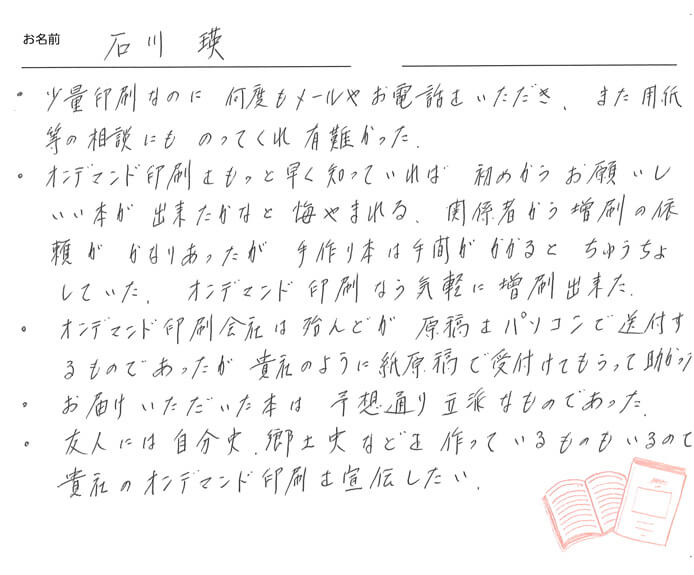 お名前 石川 瑛
・少量印刷なのに 何度もメールやお電話をいただき、また用紙
等の相談にも のってくれ有難かった.
・オンデマンド印刷をもっと早く知っていれば 初めからお願いし
いい本が 出来たかなと 悔やまれる、関係者から増刷の依
頼が かなりあったが 手作り本は手間がかかると ちゅうちょ
していた. オンデマンド印刷なら気軽に増刷出来た.
・オンデマンド印刷会社は殆んどが 原稿をパソコンで送付す
るものであったが 貴社のように紙原稿で受付けてもらって助かっ
・お届けいただいた本は 予想通り立派なものであった.
・友人には自分史、郷土史などを作っているものもいるので
貴社のオンデマンド印刷を宣伝したい.